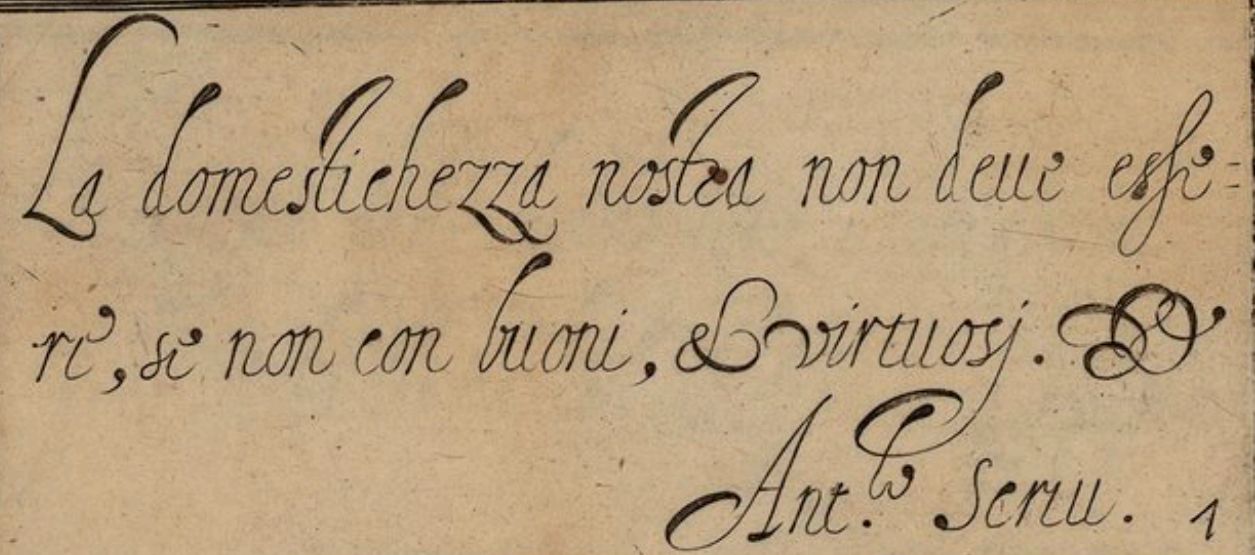 La domestichezza nostra non deue esse=
re, se non con buoni, & virtuosj. &
Ant.º Scriu. 1